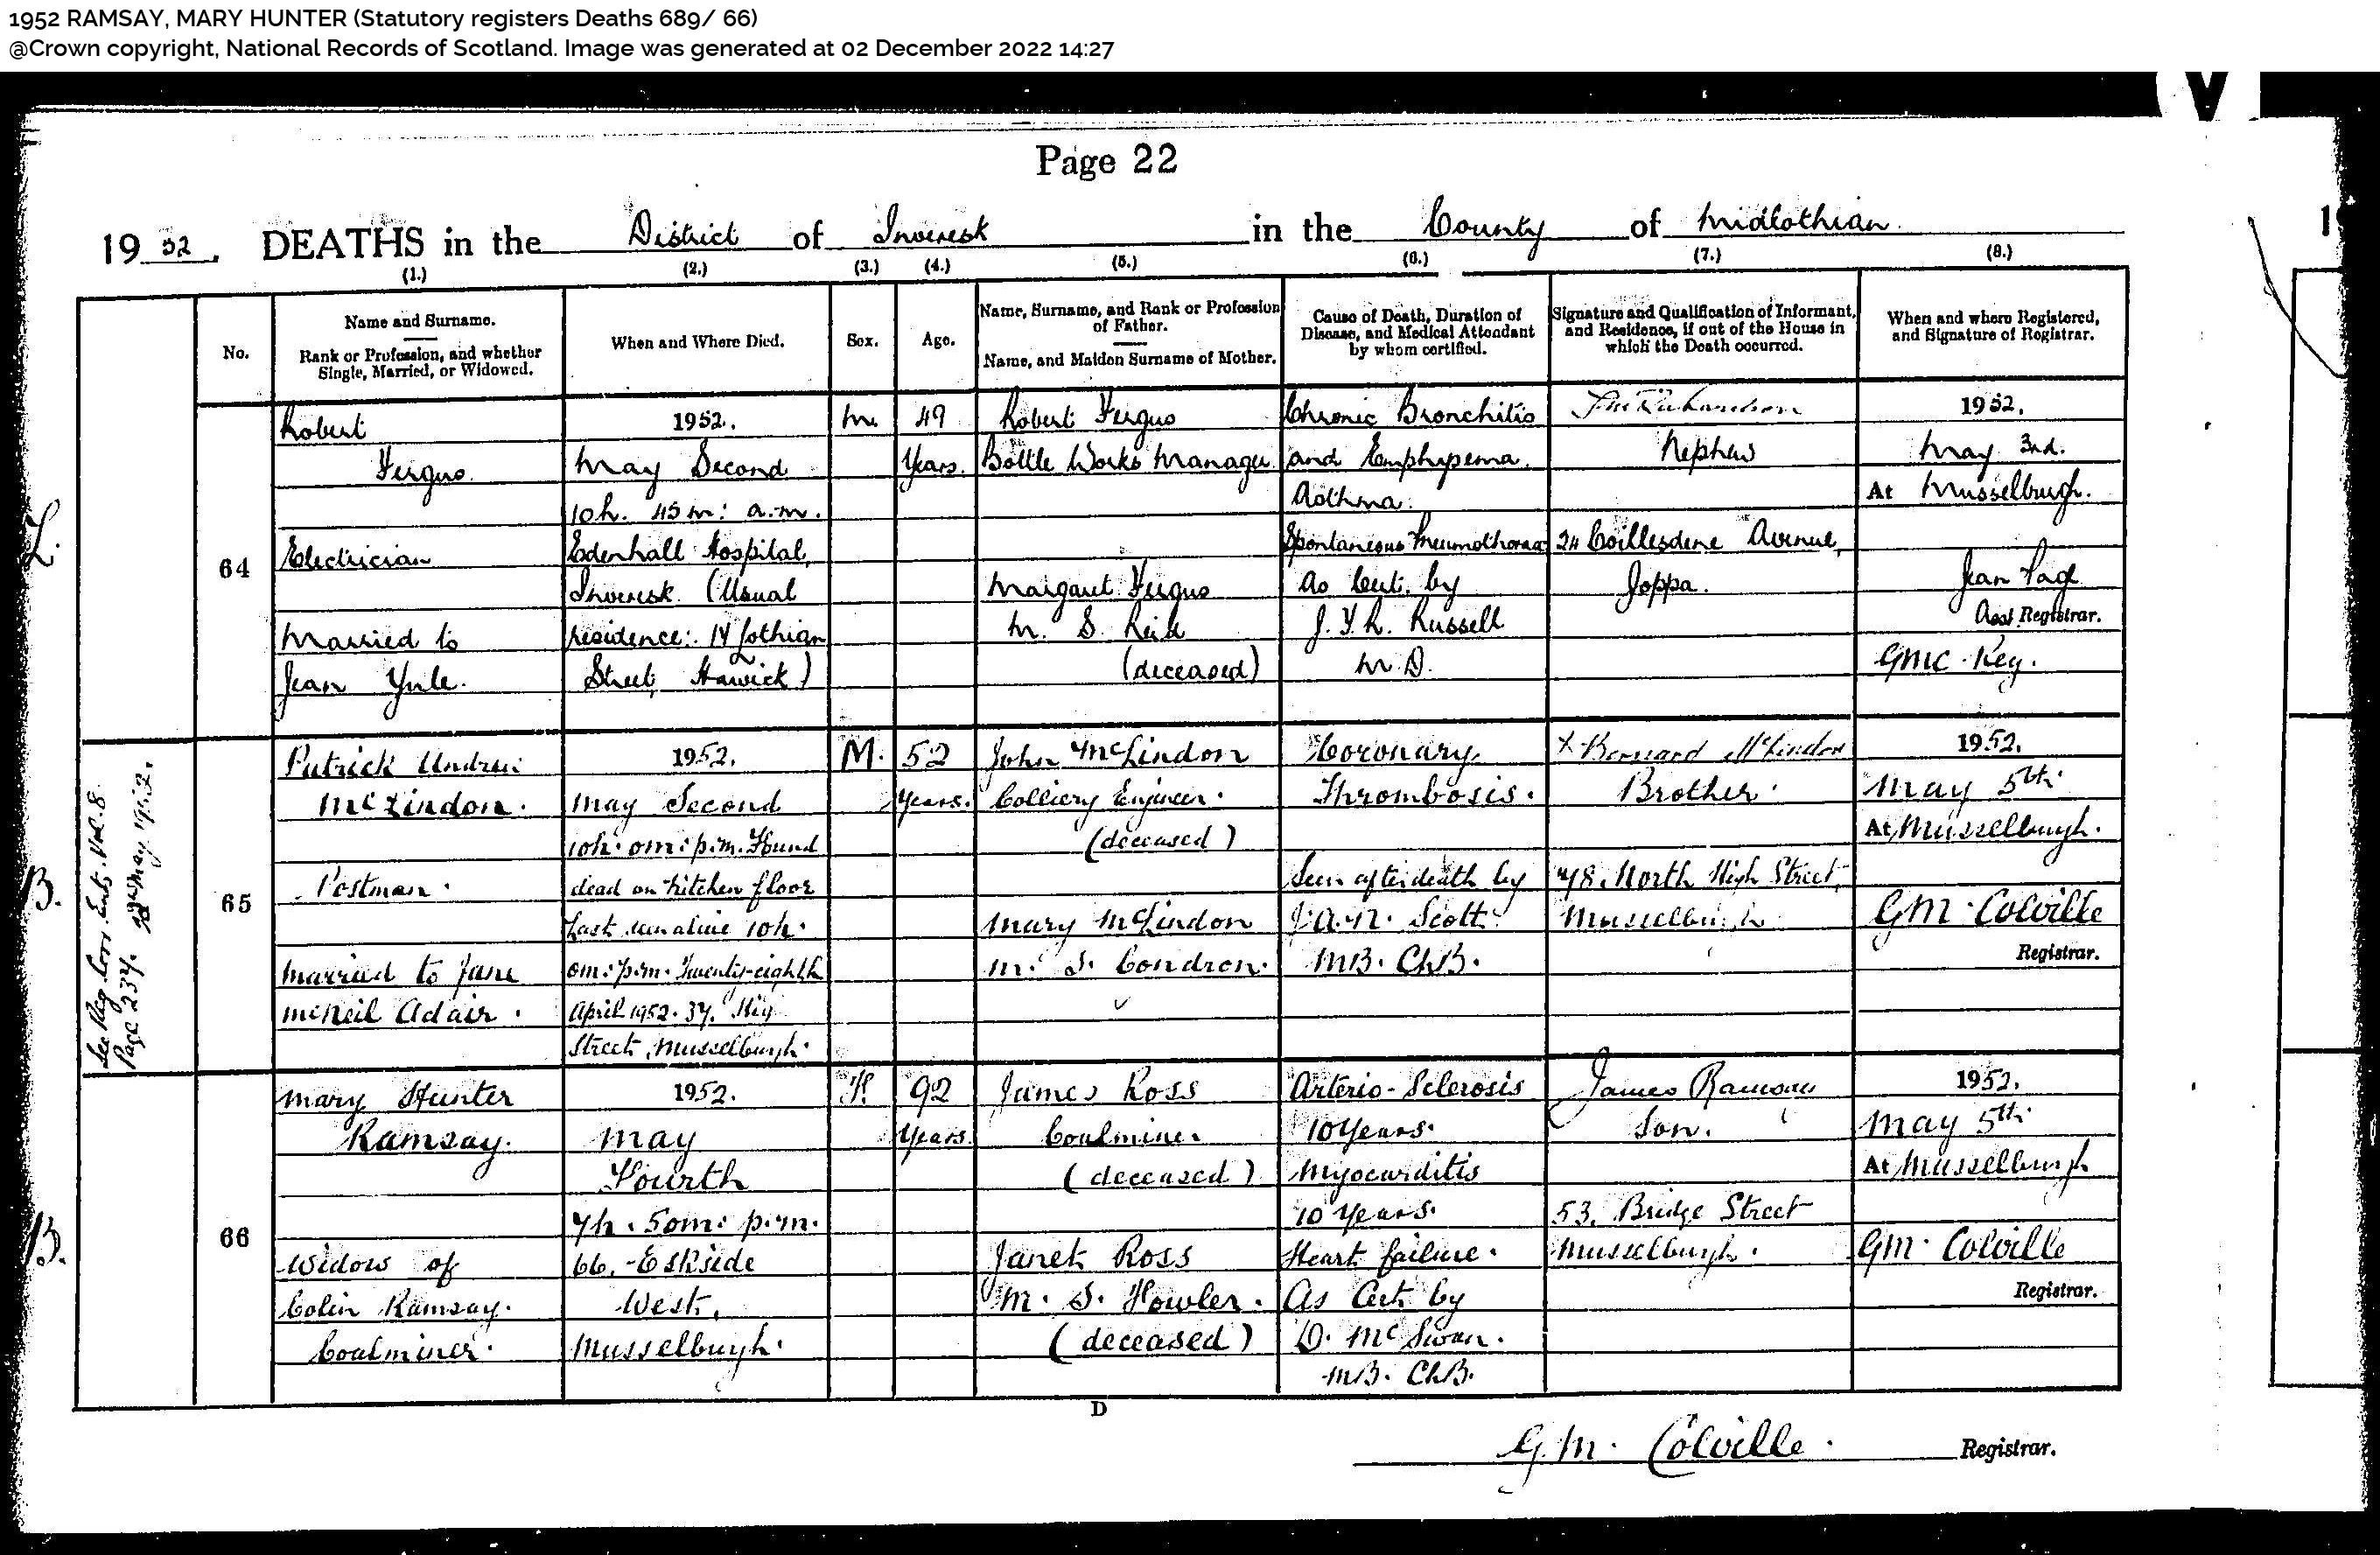 1952 RAMSAY, MARY HUNTER (Statutory registers Deaths 689/ 66)
@Crown copyright, National Records of Scotland. Image was generated at 02 December 2022 14:27
Page 22
1952. DEATHS in the District of Inveresk in the County of Midlothian
(1.) (2.) (3.) (4.) (5.) (6.) (7.) (8.)
No.
Name and Surname.
Rank or Profession, and whether
Single, Married, or Widowed.
When and Where Died.
Sex.
Age.
Name, Surname, and Rank or Profession
of Father.
Name, and Maiden Surname of Mother.
Cause of Death, Duration of
Disease, and Medical Attendant
by whom certified.
Signature and Qualification of Informant,
and Residence, if out of the House in
which the Death occurred.
When and where Registered,
and Signature of Registrar.
L.
64
Robert
Fergus
Electrician
Married to
Jean Yule.
1952.
May Second
10h. 45m: a.m.
Edenhall Hospital,
Inveresk. (Usual
residence: 14 Lothian
Street, Hawick)
M.
49
Years.
Robert Fergus
Bottle Works Manager
Margaret Fergus
M. S. Reid
(deceased)
Chronic Bronchitis
and Emphysema.
Asthma.
Spontaneous Pneumothorax
As Cert. by
J. Y. R. Russell
M.D.
Richardson
Nephew
24 Coillesdene Avenue,
Joppa.
1952.
May 3rd.
At Musselburgh.
Jean Page
Asst Registrar.
GMC. Reg.
B.
See Reg. Corr. Ents. Vol. 8.
Page 237. May 1952.
65
Patrick Andrew
McLindon.
Postman.
married to Jane
McNeil Adair.
1952.
May Second
10h. 0m: p.m. Found
dead on kitchen floor
Last seen alive 10h.
0m: p.m. Twenty-eighth
April 1952. 37. Hig
Street, Musselburgh.
M.
52
Years.
John McLindon
Colliery Engineer.
(deceased)
Mary McLindon
M. S. Condron.
Coronary
Thrombosis.
Seen after death by
J. A. N. Scott
MB. ChB.
X Bernard McLindon
Brother.
78. North High Street,
Musselburgh
1952.
May 5th.
At Musselburgh.
GM. Colville
Registrar.
B.
66
Mary Hunter
Ramsay.
Widow of
Colin Ramsay.
Coalminer.
1952.
May
Fourth
7h. 50m: p.m.
66, Eskside
West,
Musselburgh.
F.
92
Years.
James Ross
Coalminer
(deceased)
Janet Ross
M. S. Fowler.
(deceased)
Arterio-Sclerosis
10 Years.
Myocarditis
10 Years.
Heart failure.
As Cert. by
D. McSwan.
MB. ChB.
James Ramsay
Son.
53, Bridge Street
Musselburgh.
1952.
May 5th.
At Musselburgh
GM. Colville
Registrar.
D
G.M. Colville. Registrar.